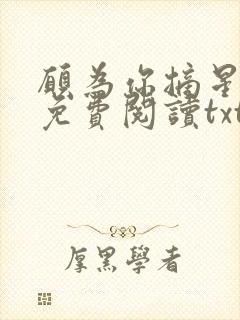 願為你摘星
免費閱讀txt
厚黑學者